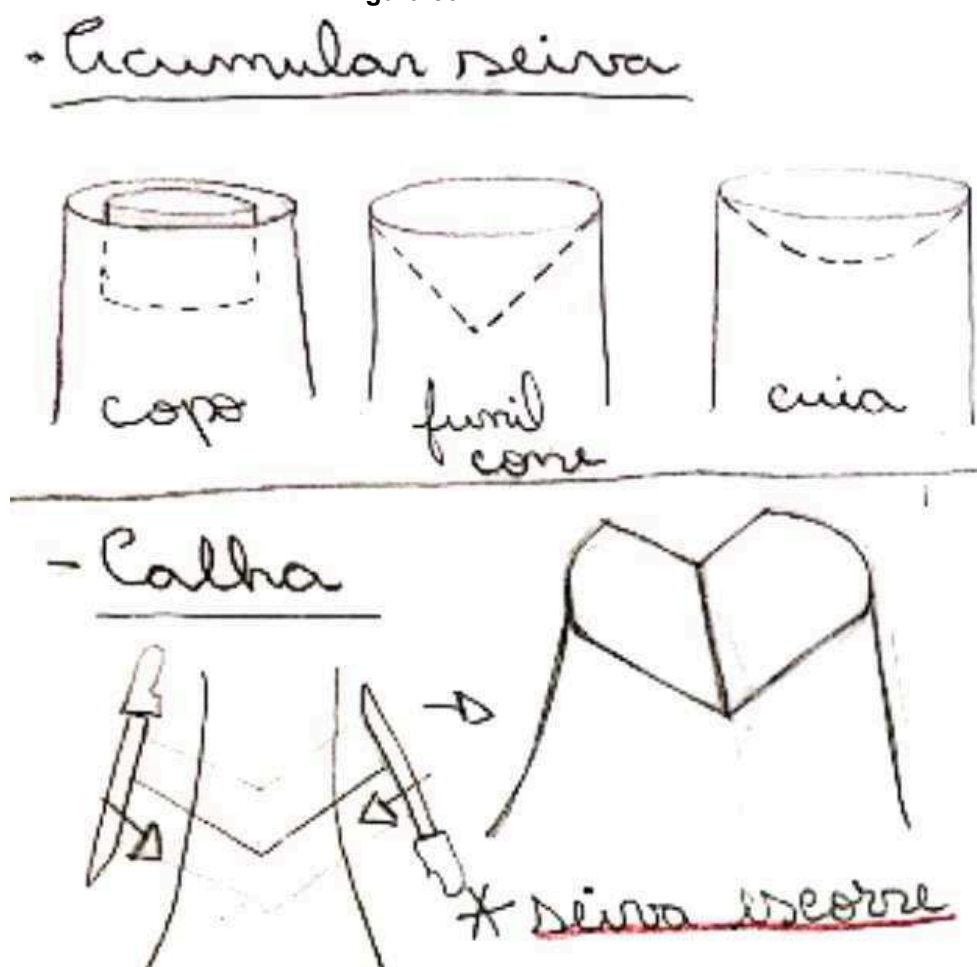 - Acumular seiva
copo
funil
cone
cuia
- Calha
* seiva escorre